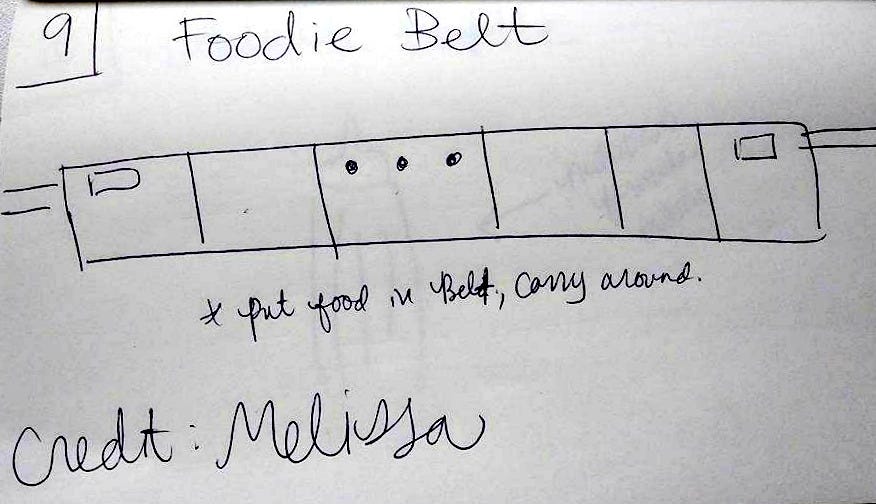 9
Foodie Belt
* put food in Belt, Carry around.
Credit: Melissa